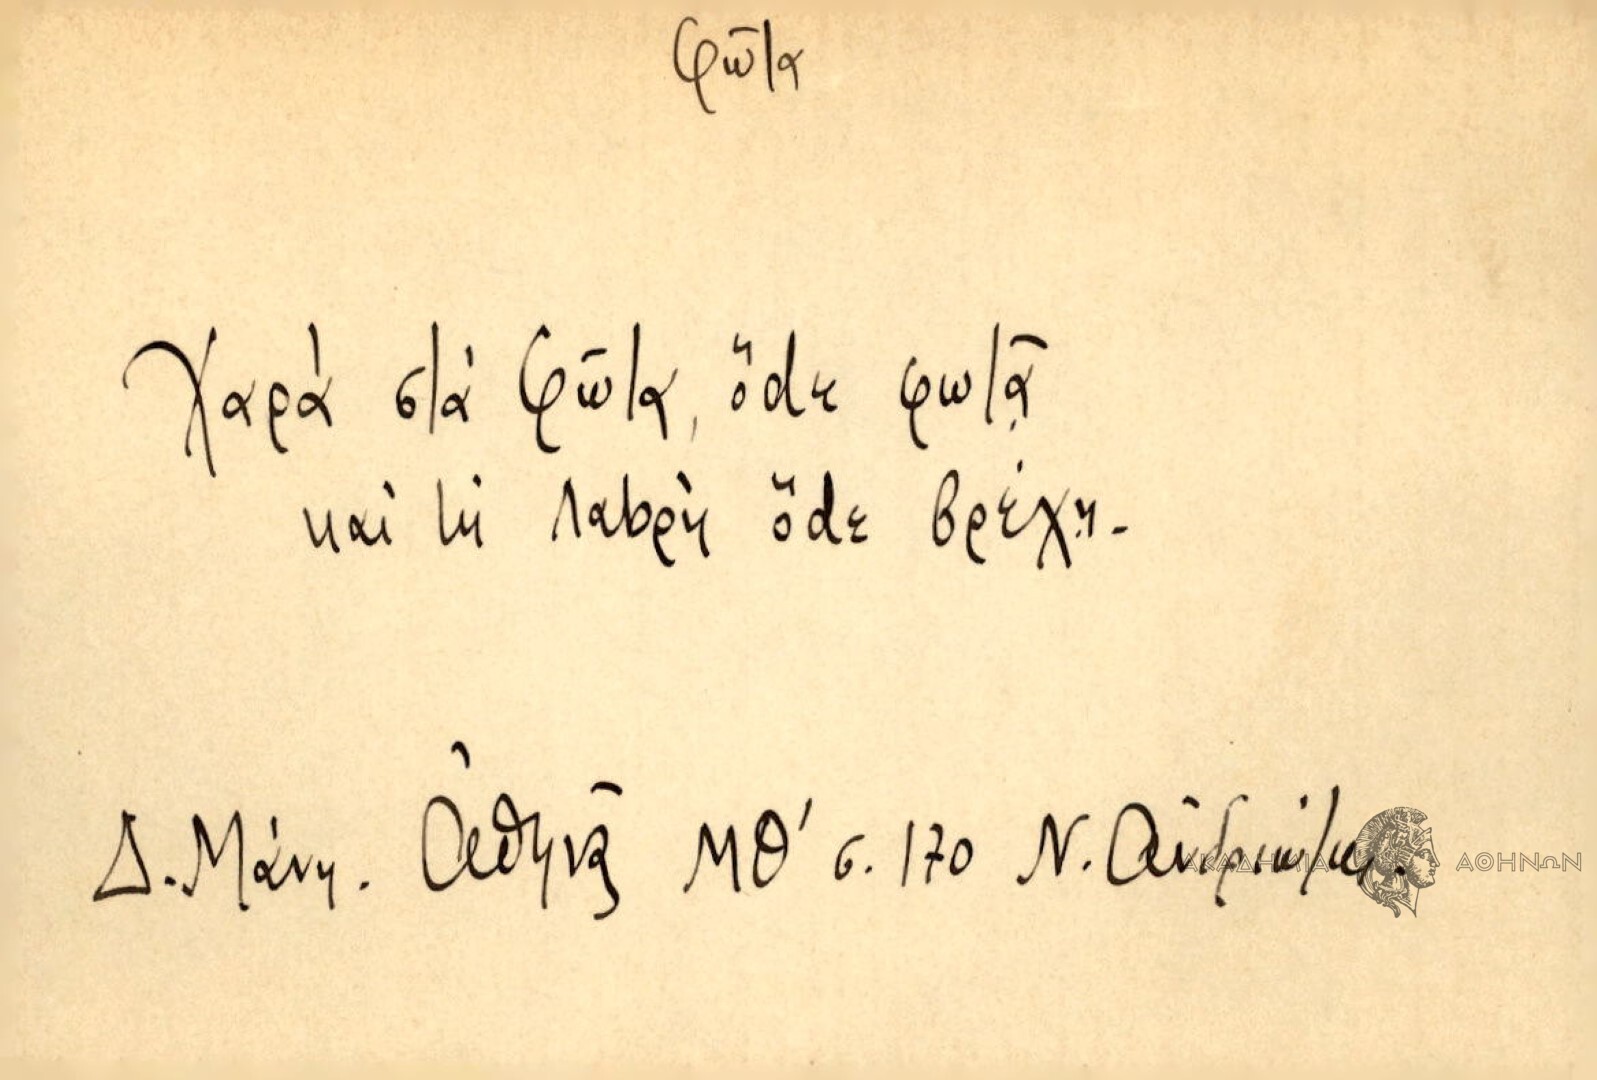 Φῶτα
Χαρὰ στὰ Φῶτα, ὅdε φωτᾷ
καὶ τὴ Λαbρὴ ὅdε βρέχῃ.
Δ. Μάνη. Ἀθηνᾶ ΜΘ' σ. 170 Ν.
ΑΚΑΔΗΜΙΑ ΑΘΗΝΩΝ